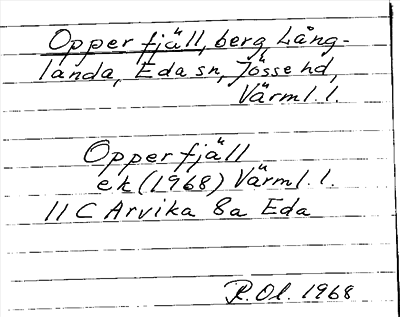 Opperfjäll, berg, Lång-
landa, Eda sn, Jösse hd,
Värml. l.
Opperfjäll
ek (1968) Värml. l.
11 C Arvika 8a Eda
R. Ol. 1968